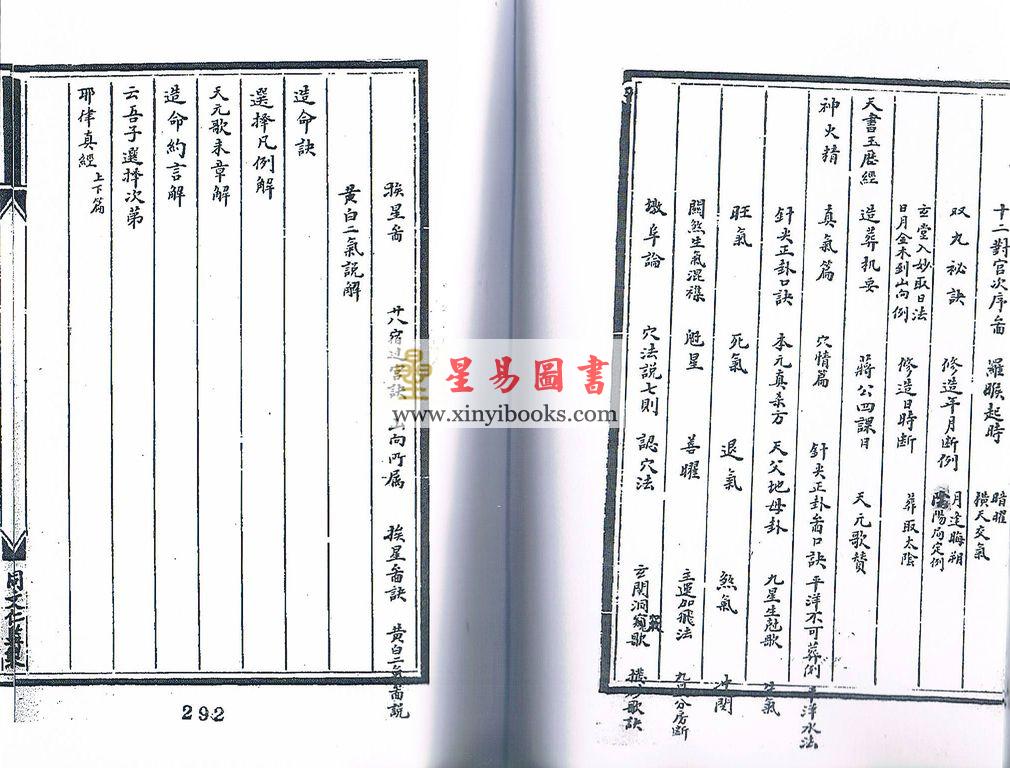 十二對宮次序畣 羅睺起時 暗曜 橫天交氣
双九祕訣 修造年月断例 月逢晦朔 陰陽局定例
玄堂入妙取日法 日月金木到山向例 修造日時断 葬取太陰
天書玉歴經 造葬机要 蔣公四課日 天元歌賛
神火精 真氣篇 穴情篇 針尖正卦畣口訣 平洋不可葬例 平洋水法
針尖正卦口訣 本元真杀方 天父地母卦 九星生尅歌 生氣
旺氣 死氣 退氣 煞氣
關煞生氣混襍 魁星 善曜 主運加飛法 九星分房断
墩阜論 穴法説七則 認穴法 玄関洞竅歌
挨星畣 廿八宿过宮訣 山向所属 挨星畣訣 黄白二氣畣説
黄白二氣説解
造命訣
選擇凡例解
天元歌末章解
造命約言解
云吾子選擇次第
耶律真經 上下篇
292
星易圖書
www.xinyibooks.com